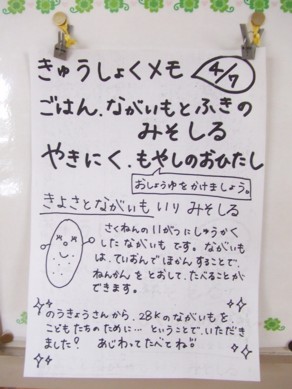 きゅうしょくメモ 4/7
ごはん、ながいもとふきの
みそしる
やきにく、もやしのおひたし
おしょうゆをかけましょう。
きよさとながいも いり みそしる
さくねんの11がつにしゅうかく
したながいも です。ながいも
は、ていおんで ほかん することで、
ねんかんを とおして、たべることが
できます。
のうきょうさんから、28Kのながいもを、
こどもたちのために… ということで、いただき
ました! あじわってたべてね!!